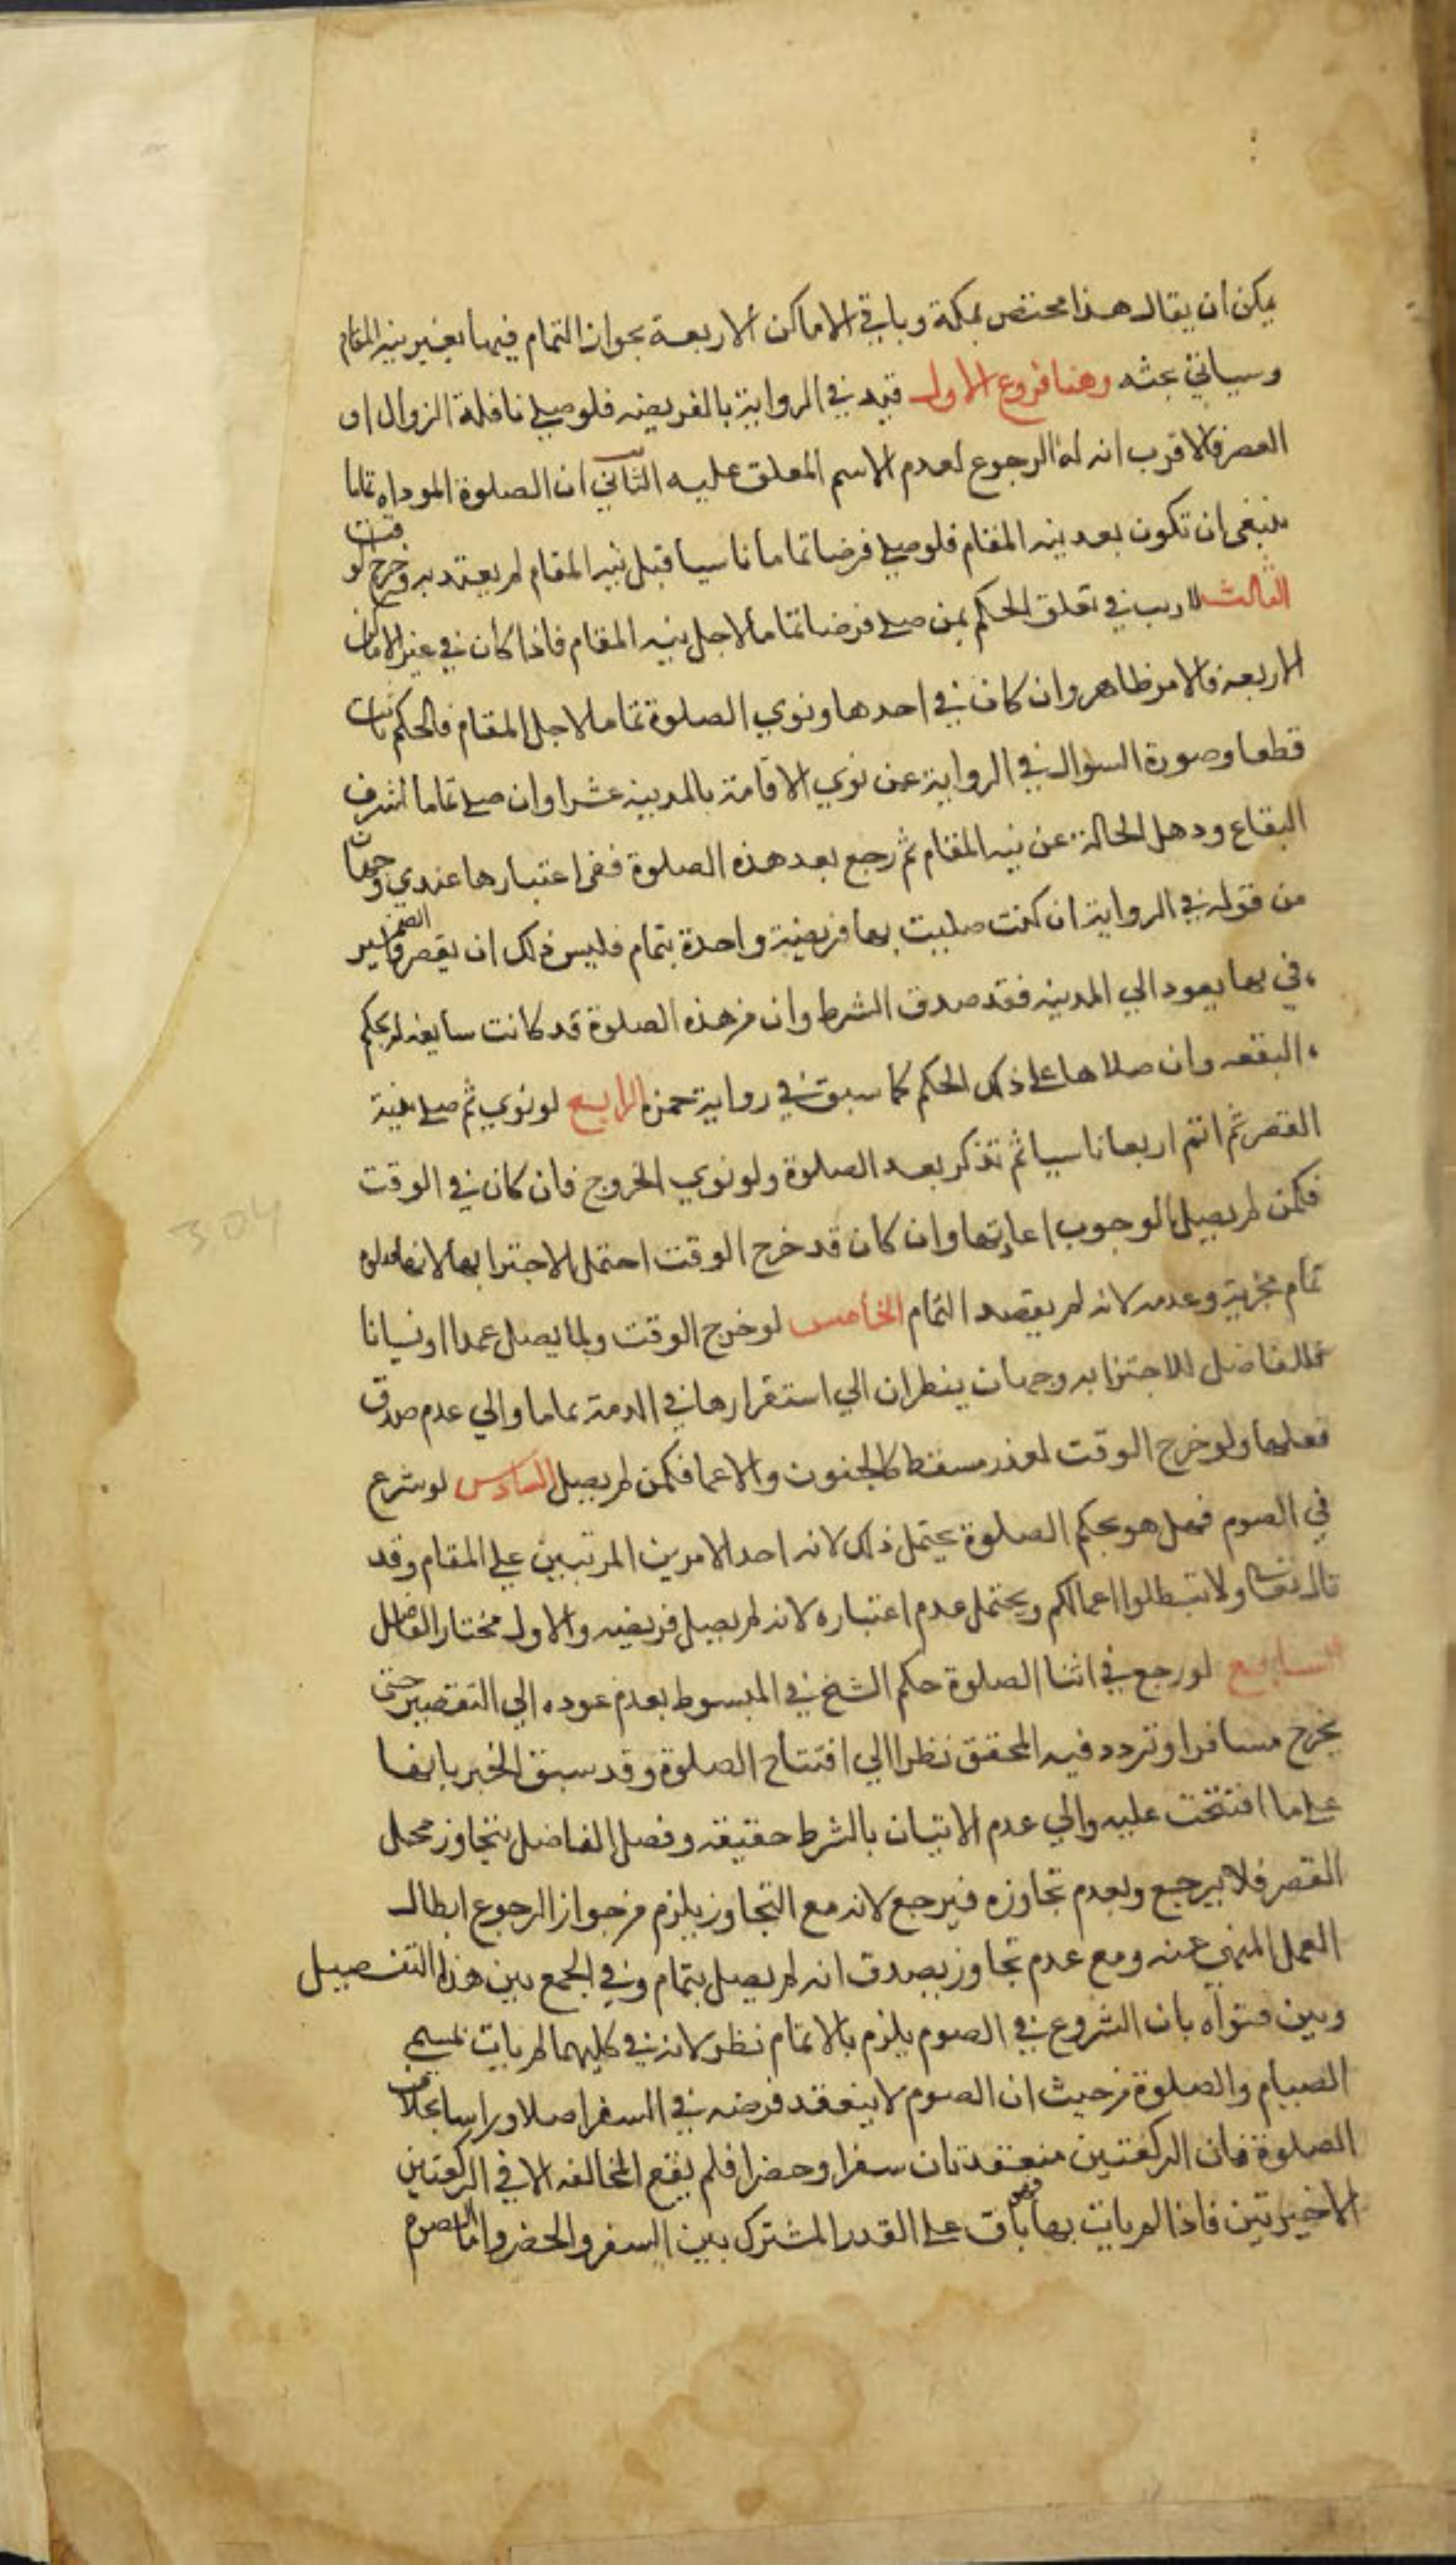 يمكن ان يقال هذا مختص بمكة وباقي الاماكن الاربعة بجواز التمام فيها بغير نية المقام
وسياتي بحثه وهنا فروع الاول قيد في الرواية بالفريضه فلو صلى نافلة الزوال او
العصر فالاقرب انه له الرجوع لعدم الاسم المعلق عليه الثاني ان الصلوة الموداه تماما
ينبغي ان تكون بعد نيه المقام فلو صلى فرضا تماما ناسيا قبل نيه المقام لم يعتد به وخرج لو
الثالث لا ريب في تعلق الحكم بمن صلى فرضا تماما لاجل نيه المقام فاذا كان في غير الاماكن
الاربعة فالامر ظاهر وان كان في احدها ونوي الصلوة تماما لاجل المقام فالحكم ثابت
قطعا وصورة السؤال في الرواية عن نوي الاقامة بالمدينه عشرا وان صلى تماما لشرف
البقاع وذهل الحالة عن نيه المقام ثم رجع بعد هذه الصلوة ففي اعتبارها عندي وجهان
من قوله في الرواية ان كنت صليت بها فريضة واحدة بتمام فليس ذلك ان يقصر
في بها يعود الي المدينه فقد صدق الشرط وان من هذه الصلوة قد كانت سايغه له بحكم
البقعه وان صلاها على ذلك الحكم كما سبق في رواية حمزه الرابع لو نوي ثم صلى بنية
القصر ثم اتم اربعا ناسيا ثم تذكر بعد الصلوة ولو نوي الخروج فان كان في الوقت
فكمن لم يصل لوجوب اعادتها وان كان قد خرج الوقت احتمل الاجتزا بها لانها صلوة
تمام مجزية وعدمه لانه لم يقصد التمام الخامس لو خرج الوقت ولما يصل عمدا او نسيانا
فللفاضل للاجتزا به وجهان ينظران الي استقرارها في الذمة تماما والي عدم صدق
فعلها ولو خرج الوقت لعذر مسقط كالجنون والاغما فكمن لم يصل السادس لو شرع
في الصوم فهل هو بحكم الصلوة يحتمل ذلك لانه احد الامرين المرتبين على المقام وقد
قال تعالى ولا تبطلوا اعمالكم ويحتمل عدم اعتباره لانه لم يصل فريضه والاول مختار الفاضل
السابع لو رجع في اثنا الصلوة حكم الشيخ في المبسوط بعدم عوده الي التقصير حتى
يخرج مسافرا وتردد فيه المحقق نظرا الي افتتاح الصلوة وقد سبق الخبر بانها
على ما افتتحت عليه والي عدم الاتيان بالشرط حقيقه وفصل الفاضل بتجاوز محل
القصر فلا يرجع وبعدم تجاوزه فيرجع لانه مع التجاوز يلزم من جواز الرجوع ابطال
العمل المنهي عنه ومع عدم تجاوز يصدق انه لم يصل بتمام وفي الجمع بين هذا التفصيل
وبين فتواه بان الشروع في الصوم يلزم بالاتمام نظر لانه في كليهما لم يات بمسمى
الصيام والصلوة من حيث ان الصوم لا ينعقد فرضه في السفر اصلا وراسا بخلاف
الصلوة فان الركعتين منعقدتان سفرا وحضرا فلم يقع المخالفه الا في الركعتين
الاخيرتين فاذا لم يات بها فهو باق على القدر المشترك بين السفر والحضر واما الصوم